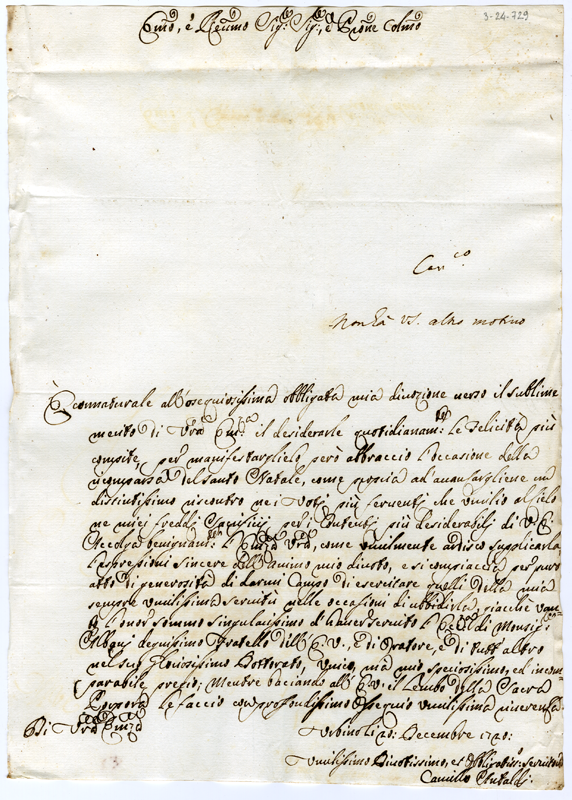 3-24-729
Emo, e Reumo Sig: Sig:, e Prone Colmo
Can.co
Non ha VS. altro motivo
È connaturale all'ossequiosissima obbligata mia divozione verso il sublime
merito di Vra Emza il desiderarle quotidianamte le felicità più
compite, per manifestarglielo però abbraccio l'occasione della
ricomparsa del Santo Natale, come propria ad avanzargliene un
distintissimo riscontro nei Voti più ferventi che umilio al Cielo
ne miei freddi Sacrifizij per i Contenti più desiderabili di V: E:
Accolga benignamte l'Emza Vra, come umilmente ardisco supplicarla
l'espressioni sincere dell'animo mio divoto, e si compiaccia per puro
atto di generosità di darmi Campo di esercitare quelli della mia
sempre umilissima servitù nelle occasioni di ubbidirla, giacche
l'onor sommo singularissimo d'haver servito l'Eccza di Monsig:
Albani degnissimo Fratello dell'E: V:, di Oratore, e di tutt'altro
nel suo gloriosissimo Dottorato, unico, ma mio speciosissimo, ed incom=
parabile pregio; Mentre baciando all'E: V: il Lembo della Sacra
Porpora le faccio con profondissimo ossequio umilissima riverenza
Di Vra Emza
Urbino li 20: Decembre 1720:
Umilissimo Divotissimo, et Obbligatiss: Servitore
Camillo Antaldi